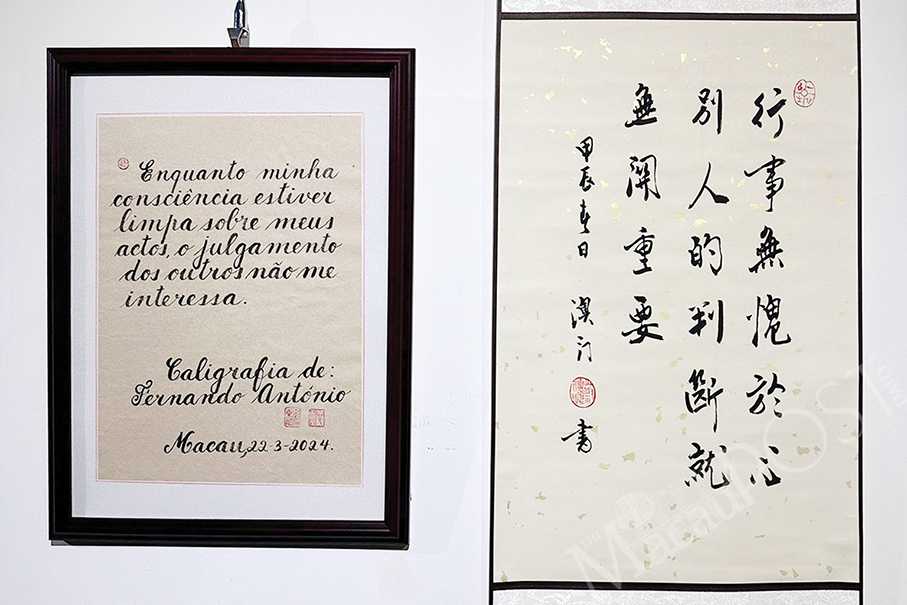 Enquanto minha
consciência estiver
limpa sobre meus
actos, o julgamento
dos outros não me
interessa.
Caligrafia de:
Fernando António
Macau, 22-3-2024.
行事無愧於心
別人的判斷就
無關重要
甲辰春日 澳門
書
THE
Macau POST